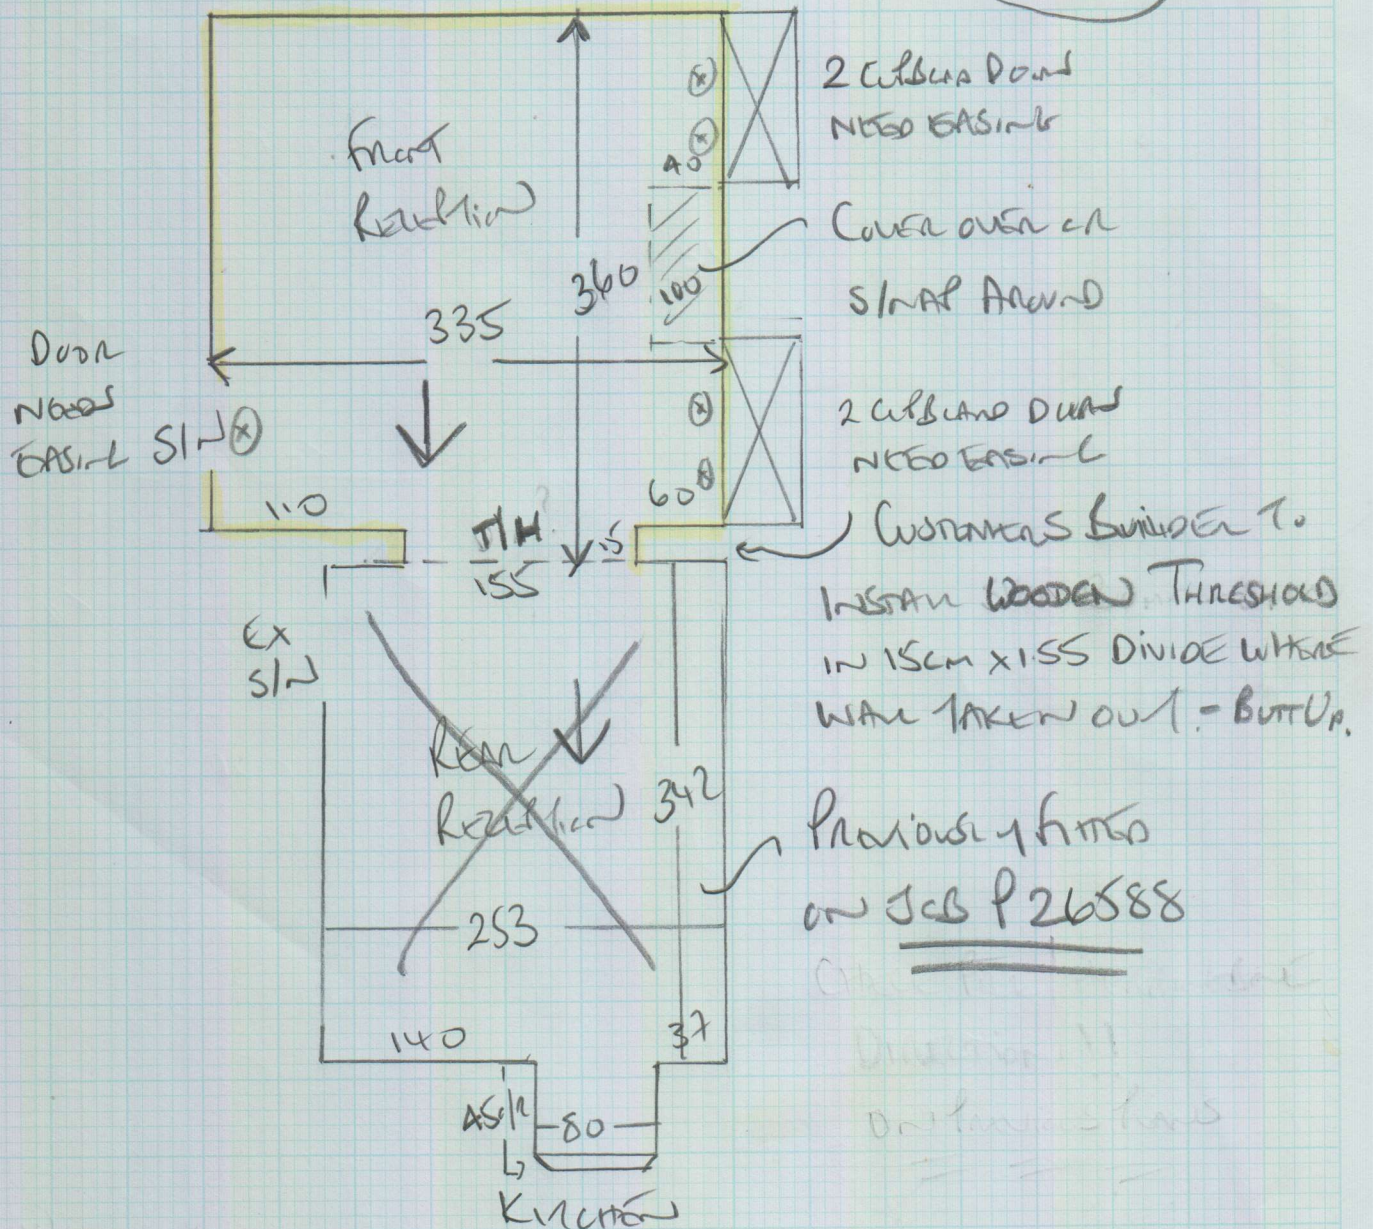 2 CUPBOARD DOORS
NEED EASING
FRONT
RECEPTION
40
COVER OVER OR
S/NAP AROUND
100
360
335
DOOR
NEEDS
EASING
S/N
2 CUPBOARD DOORS
NEED EASING
60
110
T/H
155
15
CUSTOMERS BUILDER TO
INSTALL WOODEN THRESHOLD
IN 15CM X 1.55 DIVIDE WHERE
WALL TAKEN OUT - BUTT UP.
EX
S/N
REAR
RECEPTION
342
PREVIOUSLY FITTED
ON JOB P26588
253
140
37
80
KITCHEN